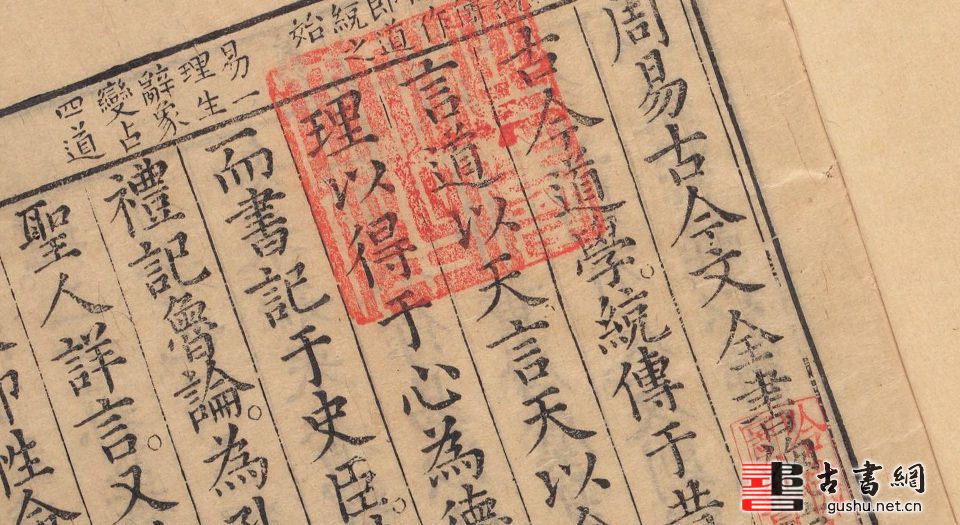 周易古今文全書
古今道學。統傳于昔
言道以天言天以
理以得于心為德
而書記于史臣。
禮記魯論。為
聖人詳言。又
性命
作
即道
統之
始
易一
理生
辭象
變占
四道
古書網
gushu.net.cn